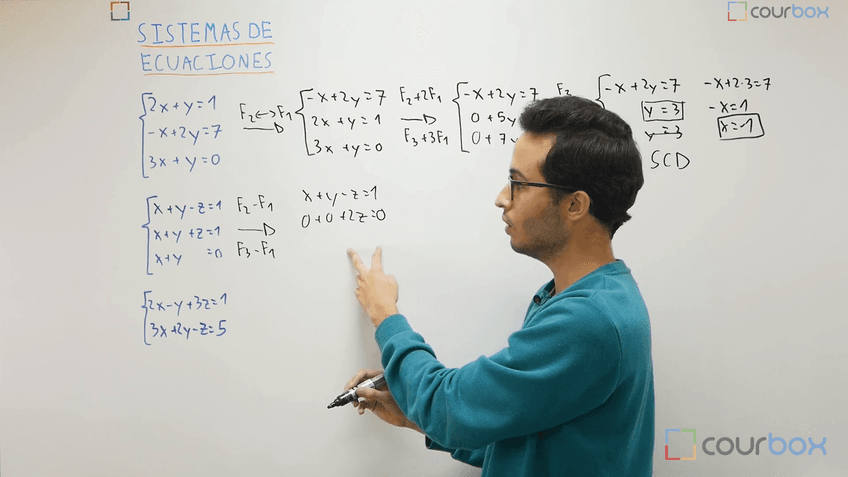 courbox
SISTEMAS DE
ECUACIONES
2x+y=1
-x+2y=7
3x+y=0
F₂↔F₁
-x+2y=7
2x+y=1
3x+y=0
F₂+2F₁
F₃+3F₁
-x+2y=7
0+5y
0+7y
F₂
-x+2y=7
y=3
y=3
SCD
-x+2·3=7
-x=1
x=-1
x+y-z=1
x+y+z=1
x+y =0
F₂-F₁
F₃-F₁
x+y-z=1
0+0+2z=0
2x-y+3z=1
3x+2y-z=5
courbox